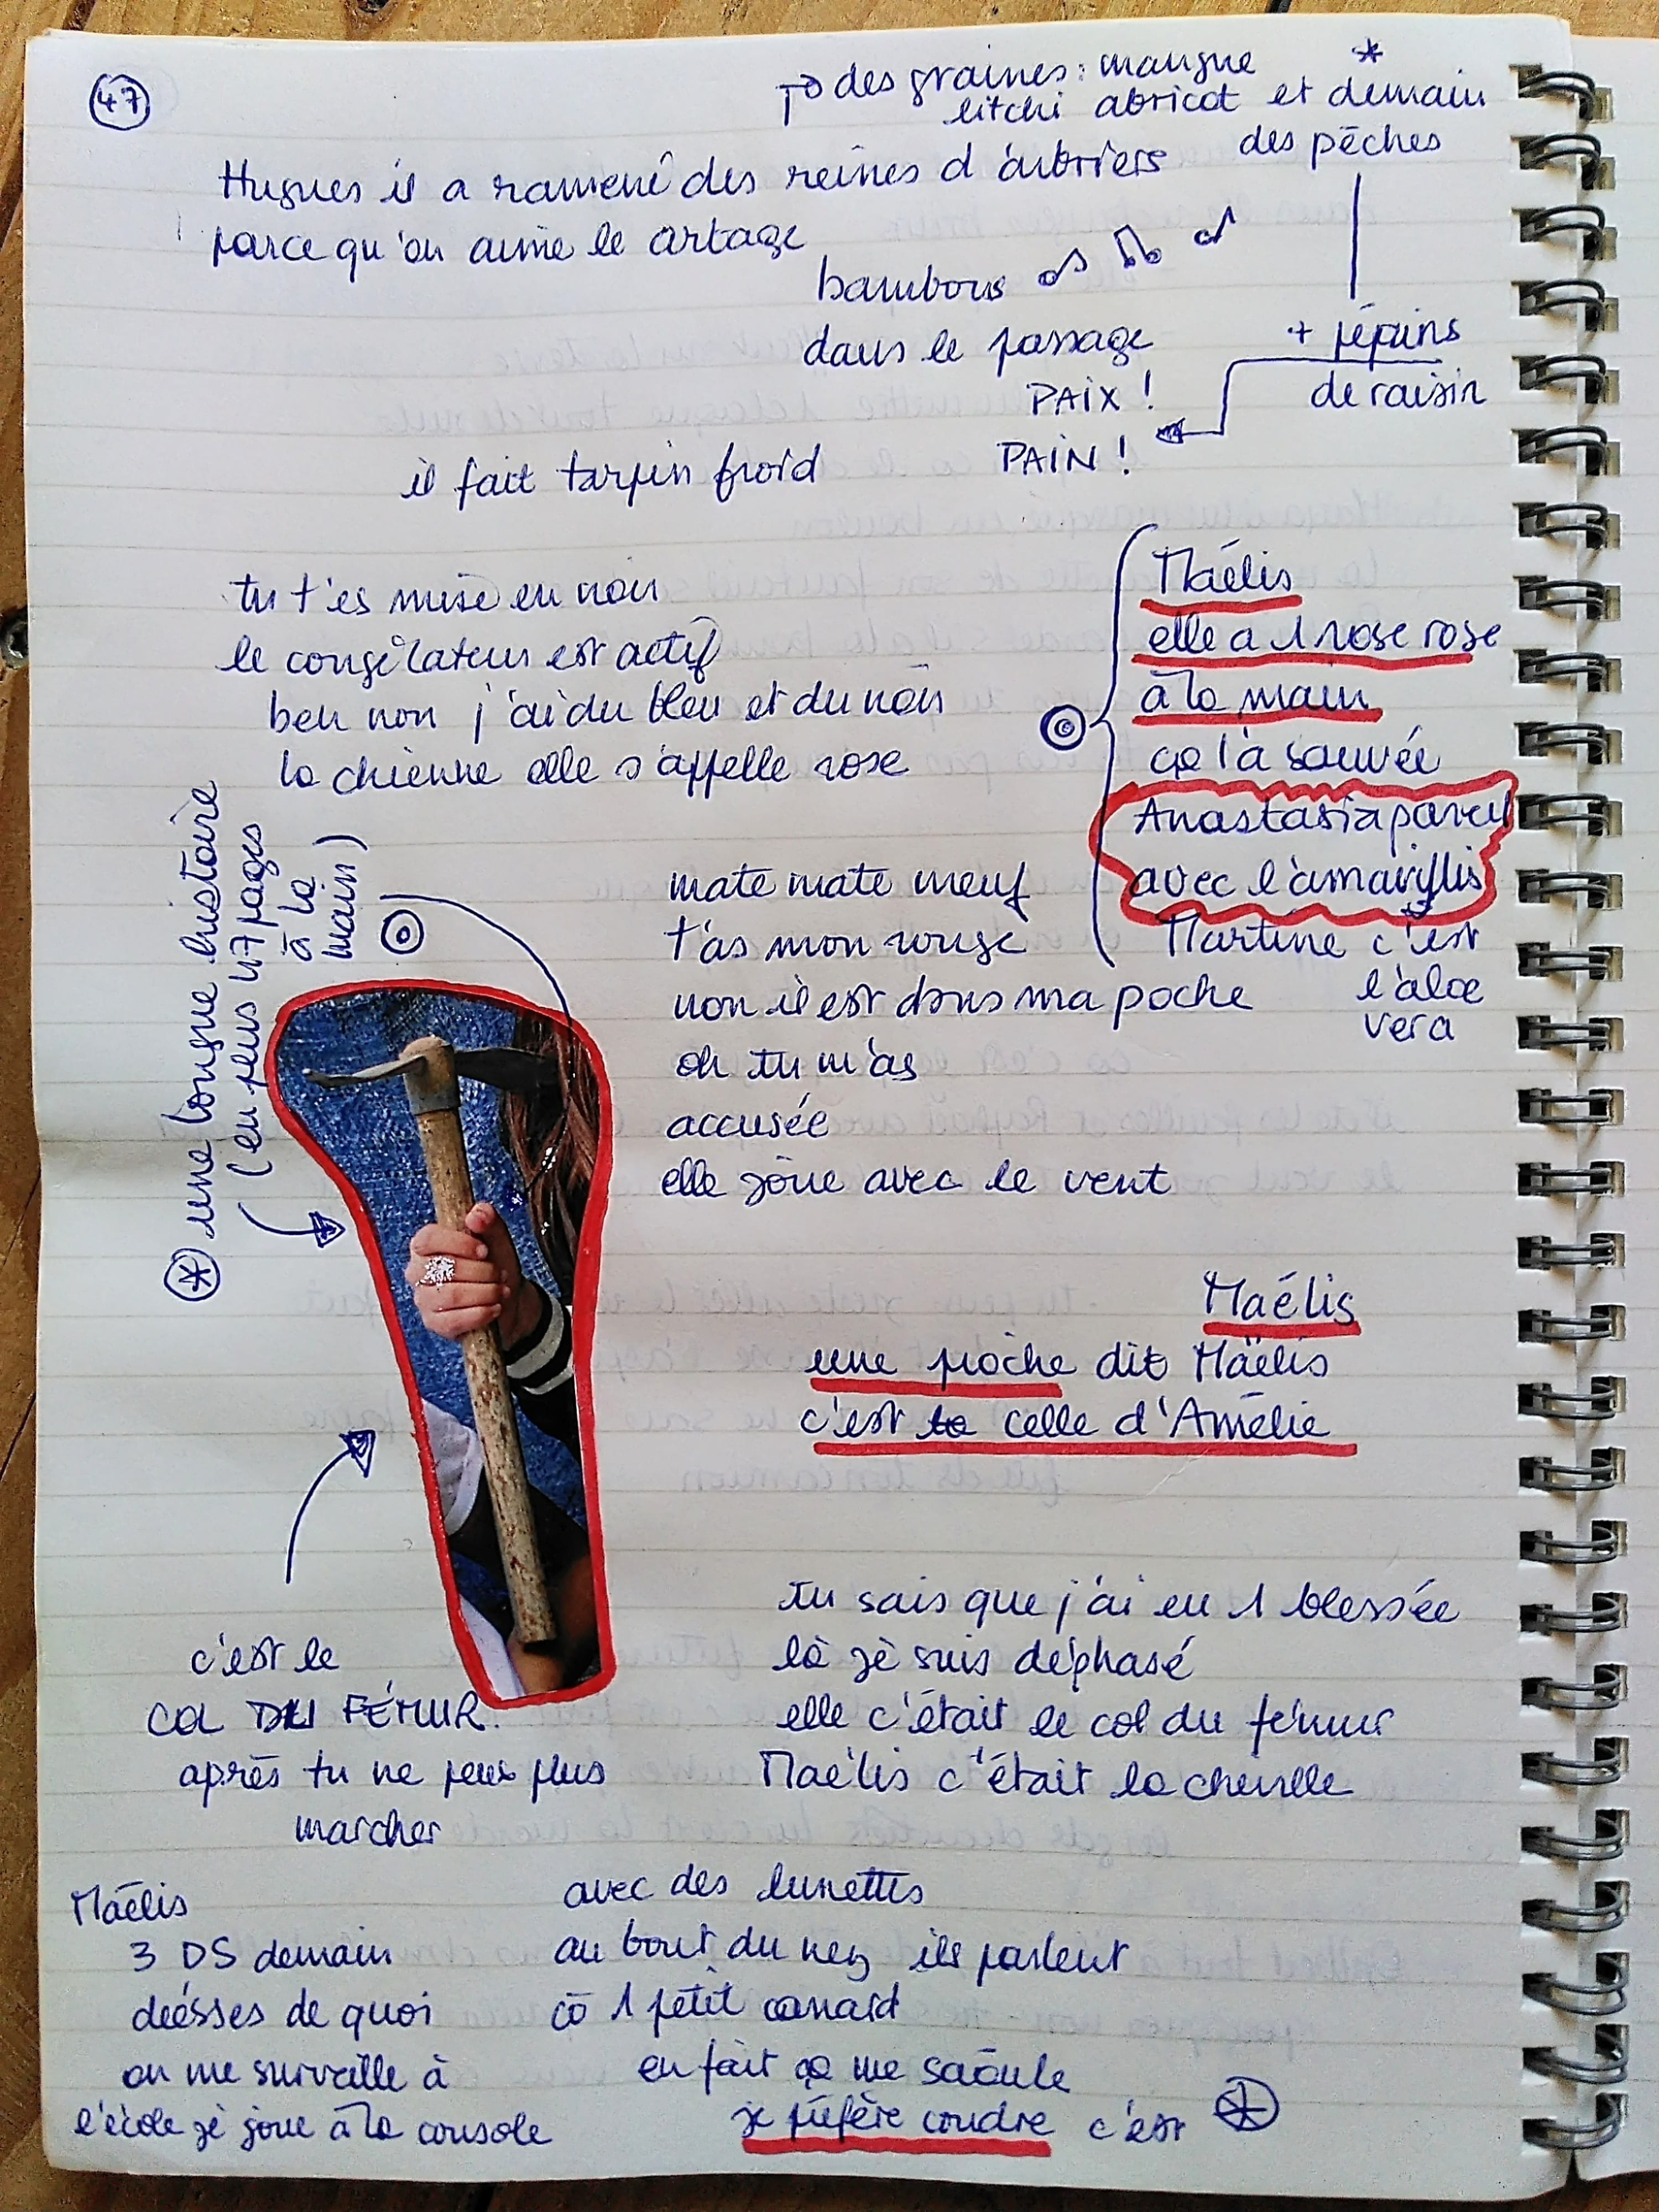 47
des graines : mangue
litchi abricot et demain *
des pêches
Hugues il a ramené des reines d'arbriers
parce qu'on aime le artage
bambous ♪ ♫ ♪
dans le passage
+ pépins
de raisin
PAIX !
PAIN !
il fait tarpin froid
tu t'es mise en noir
le congélateur est actif
ben non j'ai du bleu et du noir
la chienne elle s'appelle rose
Maélis
elle a 1 rose rose
à la main
ça l'a sauvée
Anastasia pareil
avec l'amaryllis
Martine c'est
l'aloe
vera
* une longue histoire
(en plus 47 pages
à la
main)
mate mate meuf
t'as mon rouge
non il est dans ma poche
oh tu m'as
accusée
elle joue avec le vent
Maélis
une pioche dit Maëlis
c'est la celle d'Amélie
c'est le
COL DU FÉMUR.
après tu ne peux plus
marcher
tu sais que j'ai eu 1 blessée
là je suis déphasé
elle c'était le col du fémur
Maélis c'était la cheville
Maélis
3 DS demain
déesses de quoi
on me surveille à
l'école je joue à la console
avec des lunettes
au bout du nez ils parlent
co 1 petit canard
en fait ça me saoule
je préfère coudre c'est *